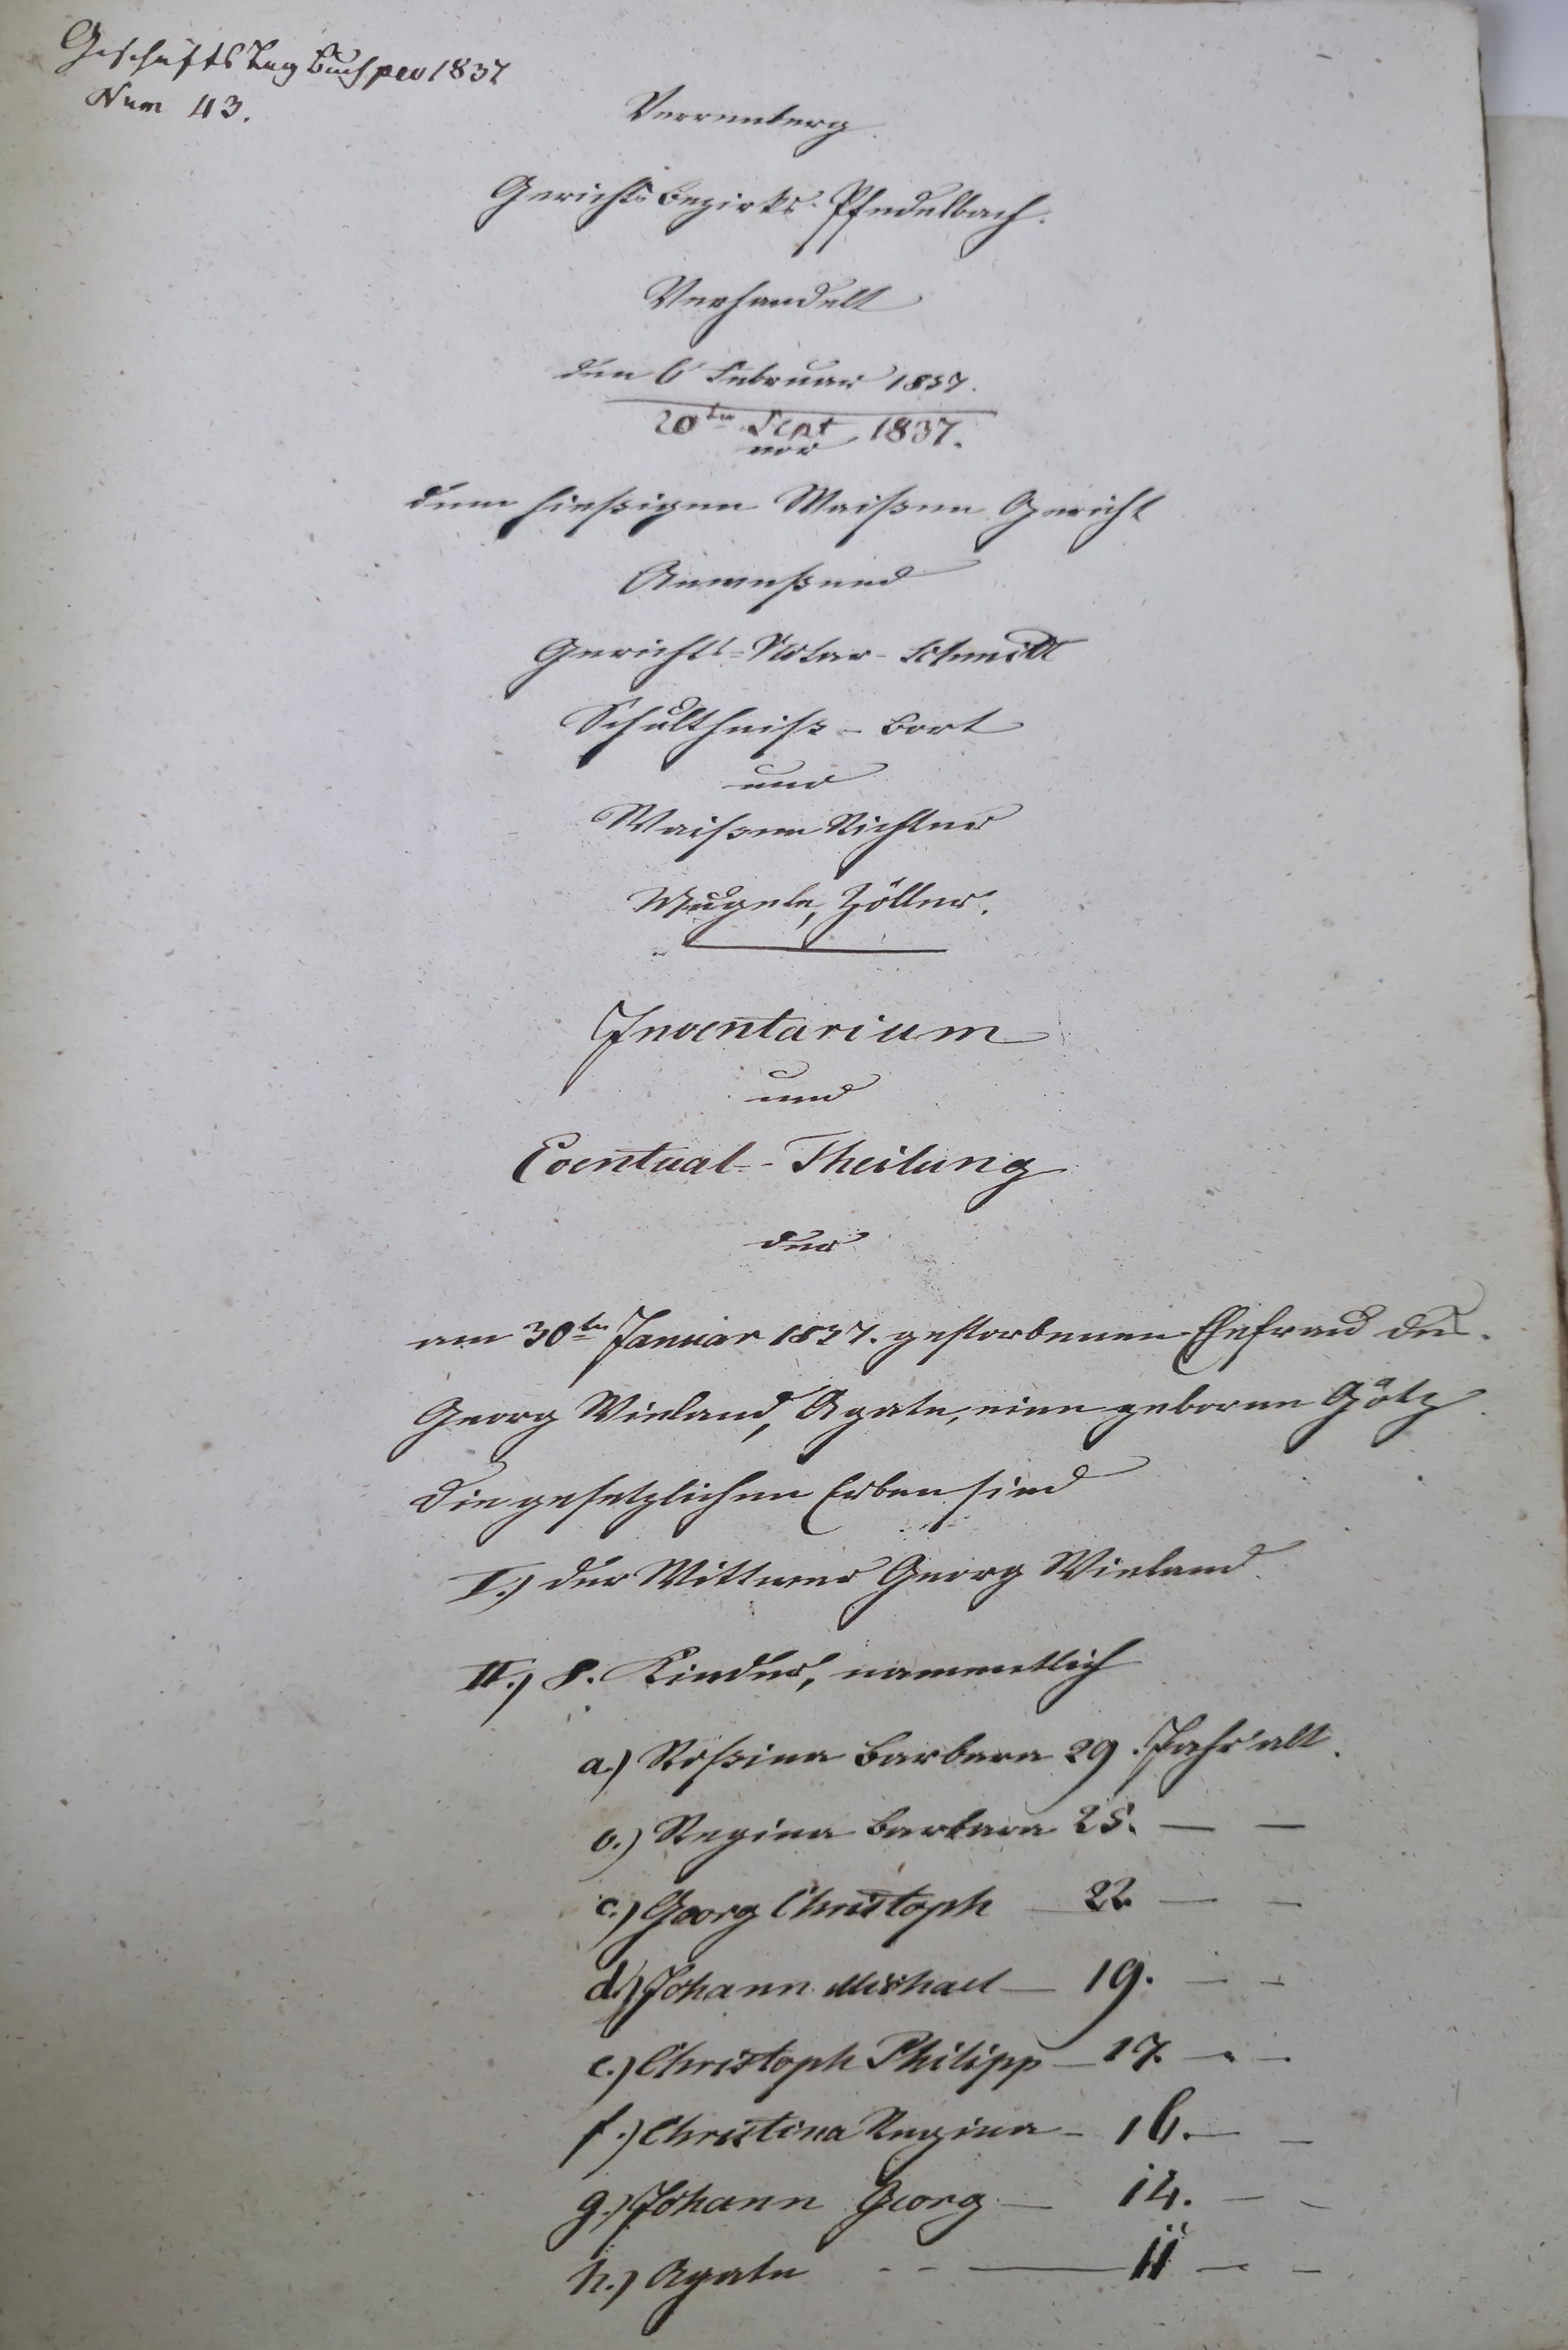 Geschäfts Tag Buch pro 1837
Num 43.
Verrenberg.
Gerichtsbezirks Pfedelbach.
Verhandelt
den 6 Februar 1837.
20ten Sept 1837.
vor
dem hießigen Waißen Gericht
Anweßend
Gerichts-Notar-Schmidt
Schultheiß - Bort
und
Waißen Richter
Mugele, Zöller.
Inventarium
und
Eventual-Theilung
der
am 30ten Januar 1837. gestorbenen Ehefrau des
Georg Wieland, Agate, eine geborne Götz
die gesetzlichen Erben sind
I.) der Wittwer Georg Wieland.
II.) 8. Kinder, namentlich
a.) Roßina Barbara 29. Jahr alt.
b.) Regina Barbara 25. — —
c.) Georg Christoph — 22. — —
d.) Johann Michael — 19. — —
e.) Christoph Philipp — 17. — —
f.) Christina Regina — 16. — —
g.) Johann Georg — 14. — —
h.) Agate — — — 11 — —